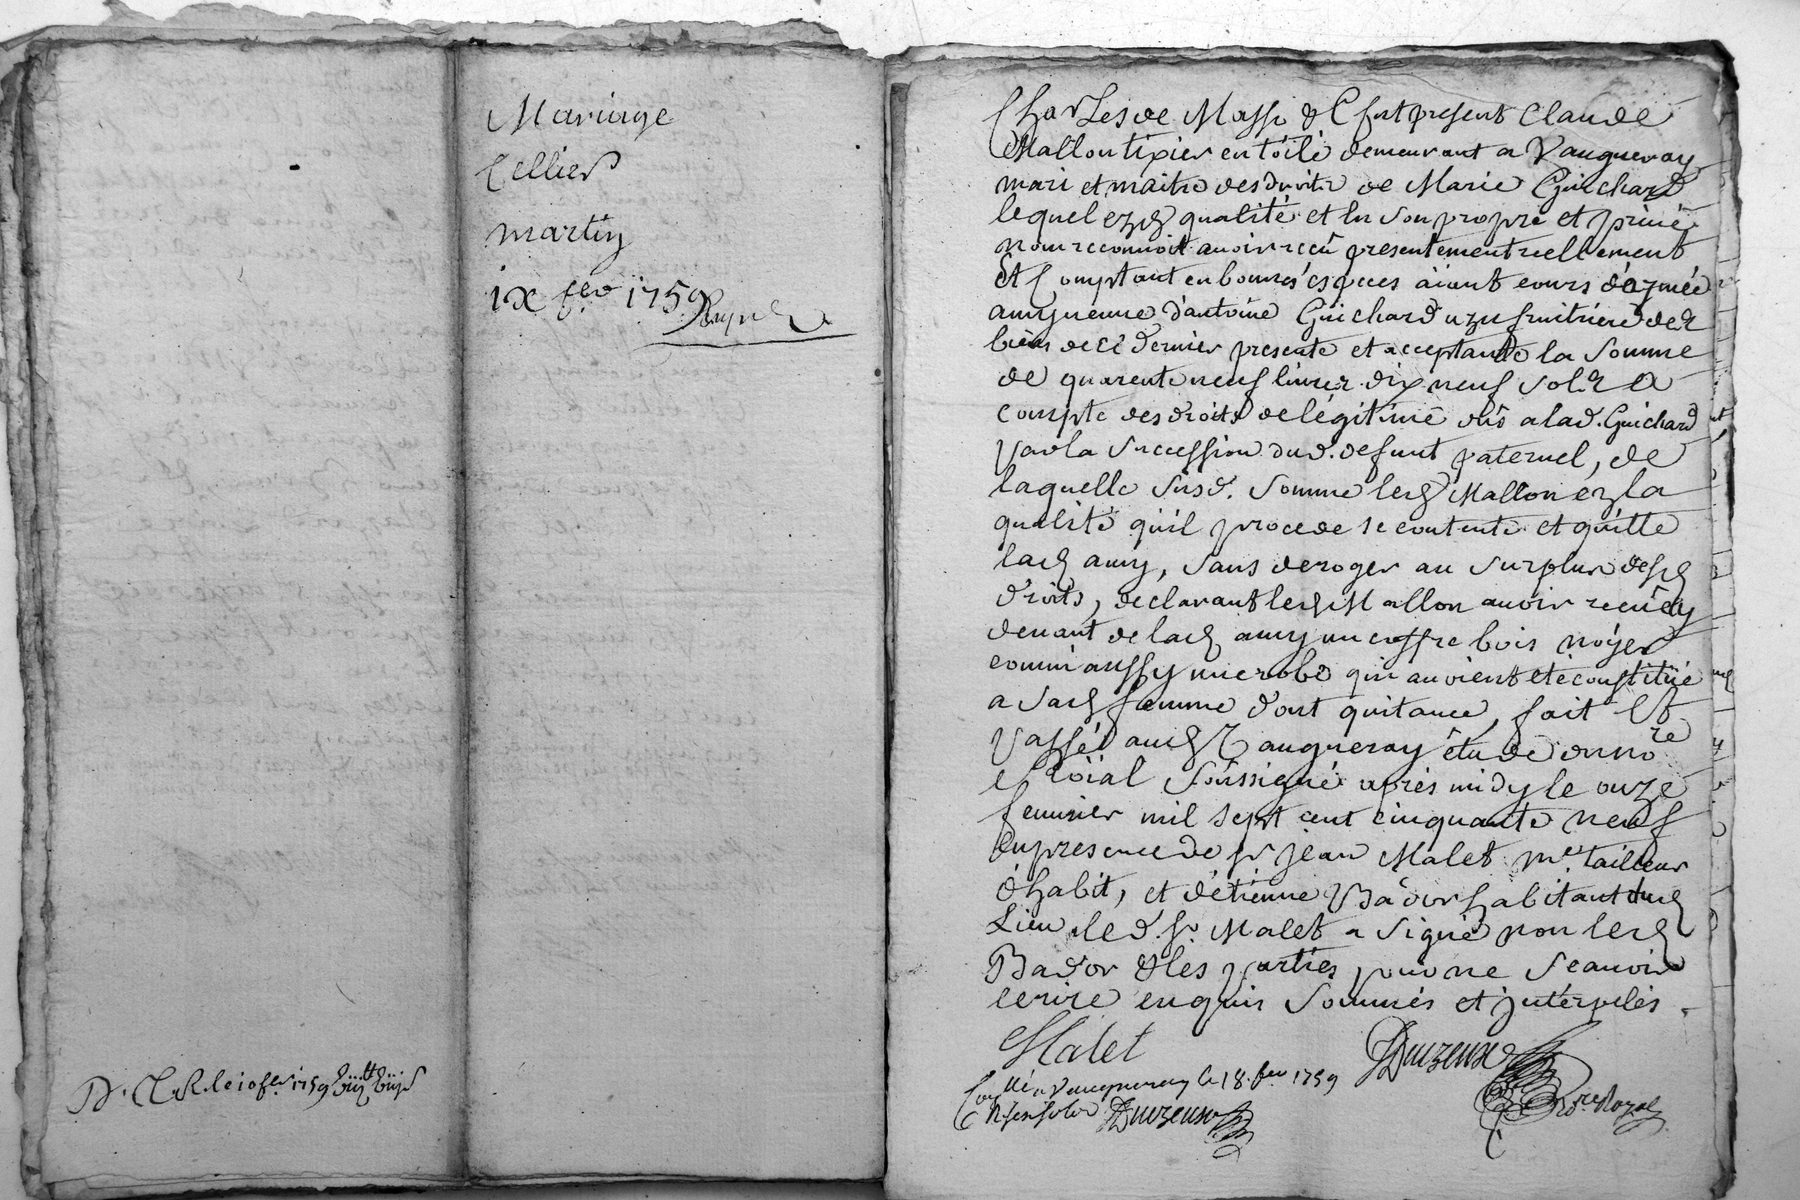 Mariage
Cellier
martin
ix fev.r 1759
le 10 fev.r 1759
Charles de Masso &c fut present Claude
Mallon tixier en toile demeurant a Vaugneray
mari et maitre des droits de Marie Guichard
lequel ezd. qualité et en son propre et privé
nom reconnoit avoir reçû presentement reellement
Et Comptant en bonnes especes aiant cours d'aymée
amy veuve d'antoine Guichard uzufruitiere des
biens de ce dernier presente et acceptante la somme
de quarente neuf livres dix neuf sols a
compte des droits de légitime dûs a lad. Guichard
par la succession dud. defunt paternel, de
laquelle susd. somme led. Mallon ez la
qualité qu'il procede se contente et quitte
lad. amy, sans deroger au surplus desd.
droits, declarant led. Mallon avoir reçû cy
devant de lad. amy un coffre bois noyer
comm'aussy une robe qui avoient eté constitüé
a sad. femme d'ont quitance, fait Et
passé aud. Vaugneray étude du no.re
roïal soussigné après midy le onze
feuvrier mil sept cent cinquante neuf
en presence de s.r jean Malet m.e tailleur
d'habit, et d'étienne Bador habitant dud.
Lieu, le d. s.r Malet a signé non led.
Bador & les parties pour ne sçavoir
écrire enquis sommés et jnterpelés.
Malet
Con.llé a Vaugneray le 18. fev.r 1759
No.re Royal